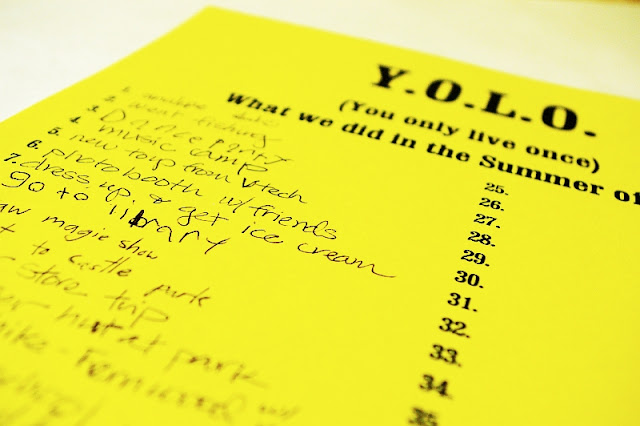 Y.O.L.O.
(You only live once)
What we did in the Summer of
1.
2. went fishing
3. Dance party
4. music camp
5. new toy from vtech
6. photobooth w/ friends
7. dress up & get ice cream
go to library
magic show
to castle park
store trip
at park
w/
25.
26.
27.
28.
29.
30.
31.
32.
33.
34.
35.